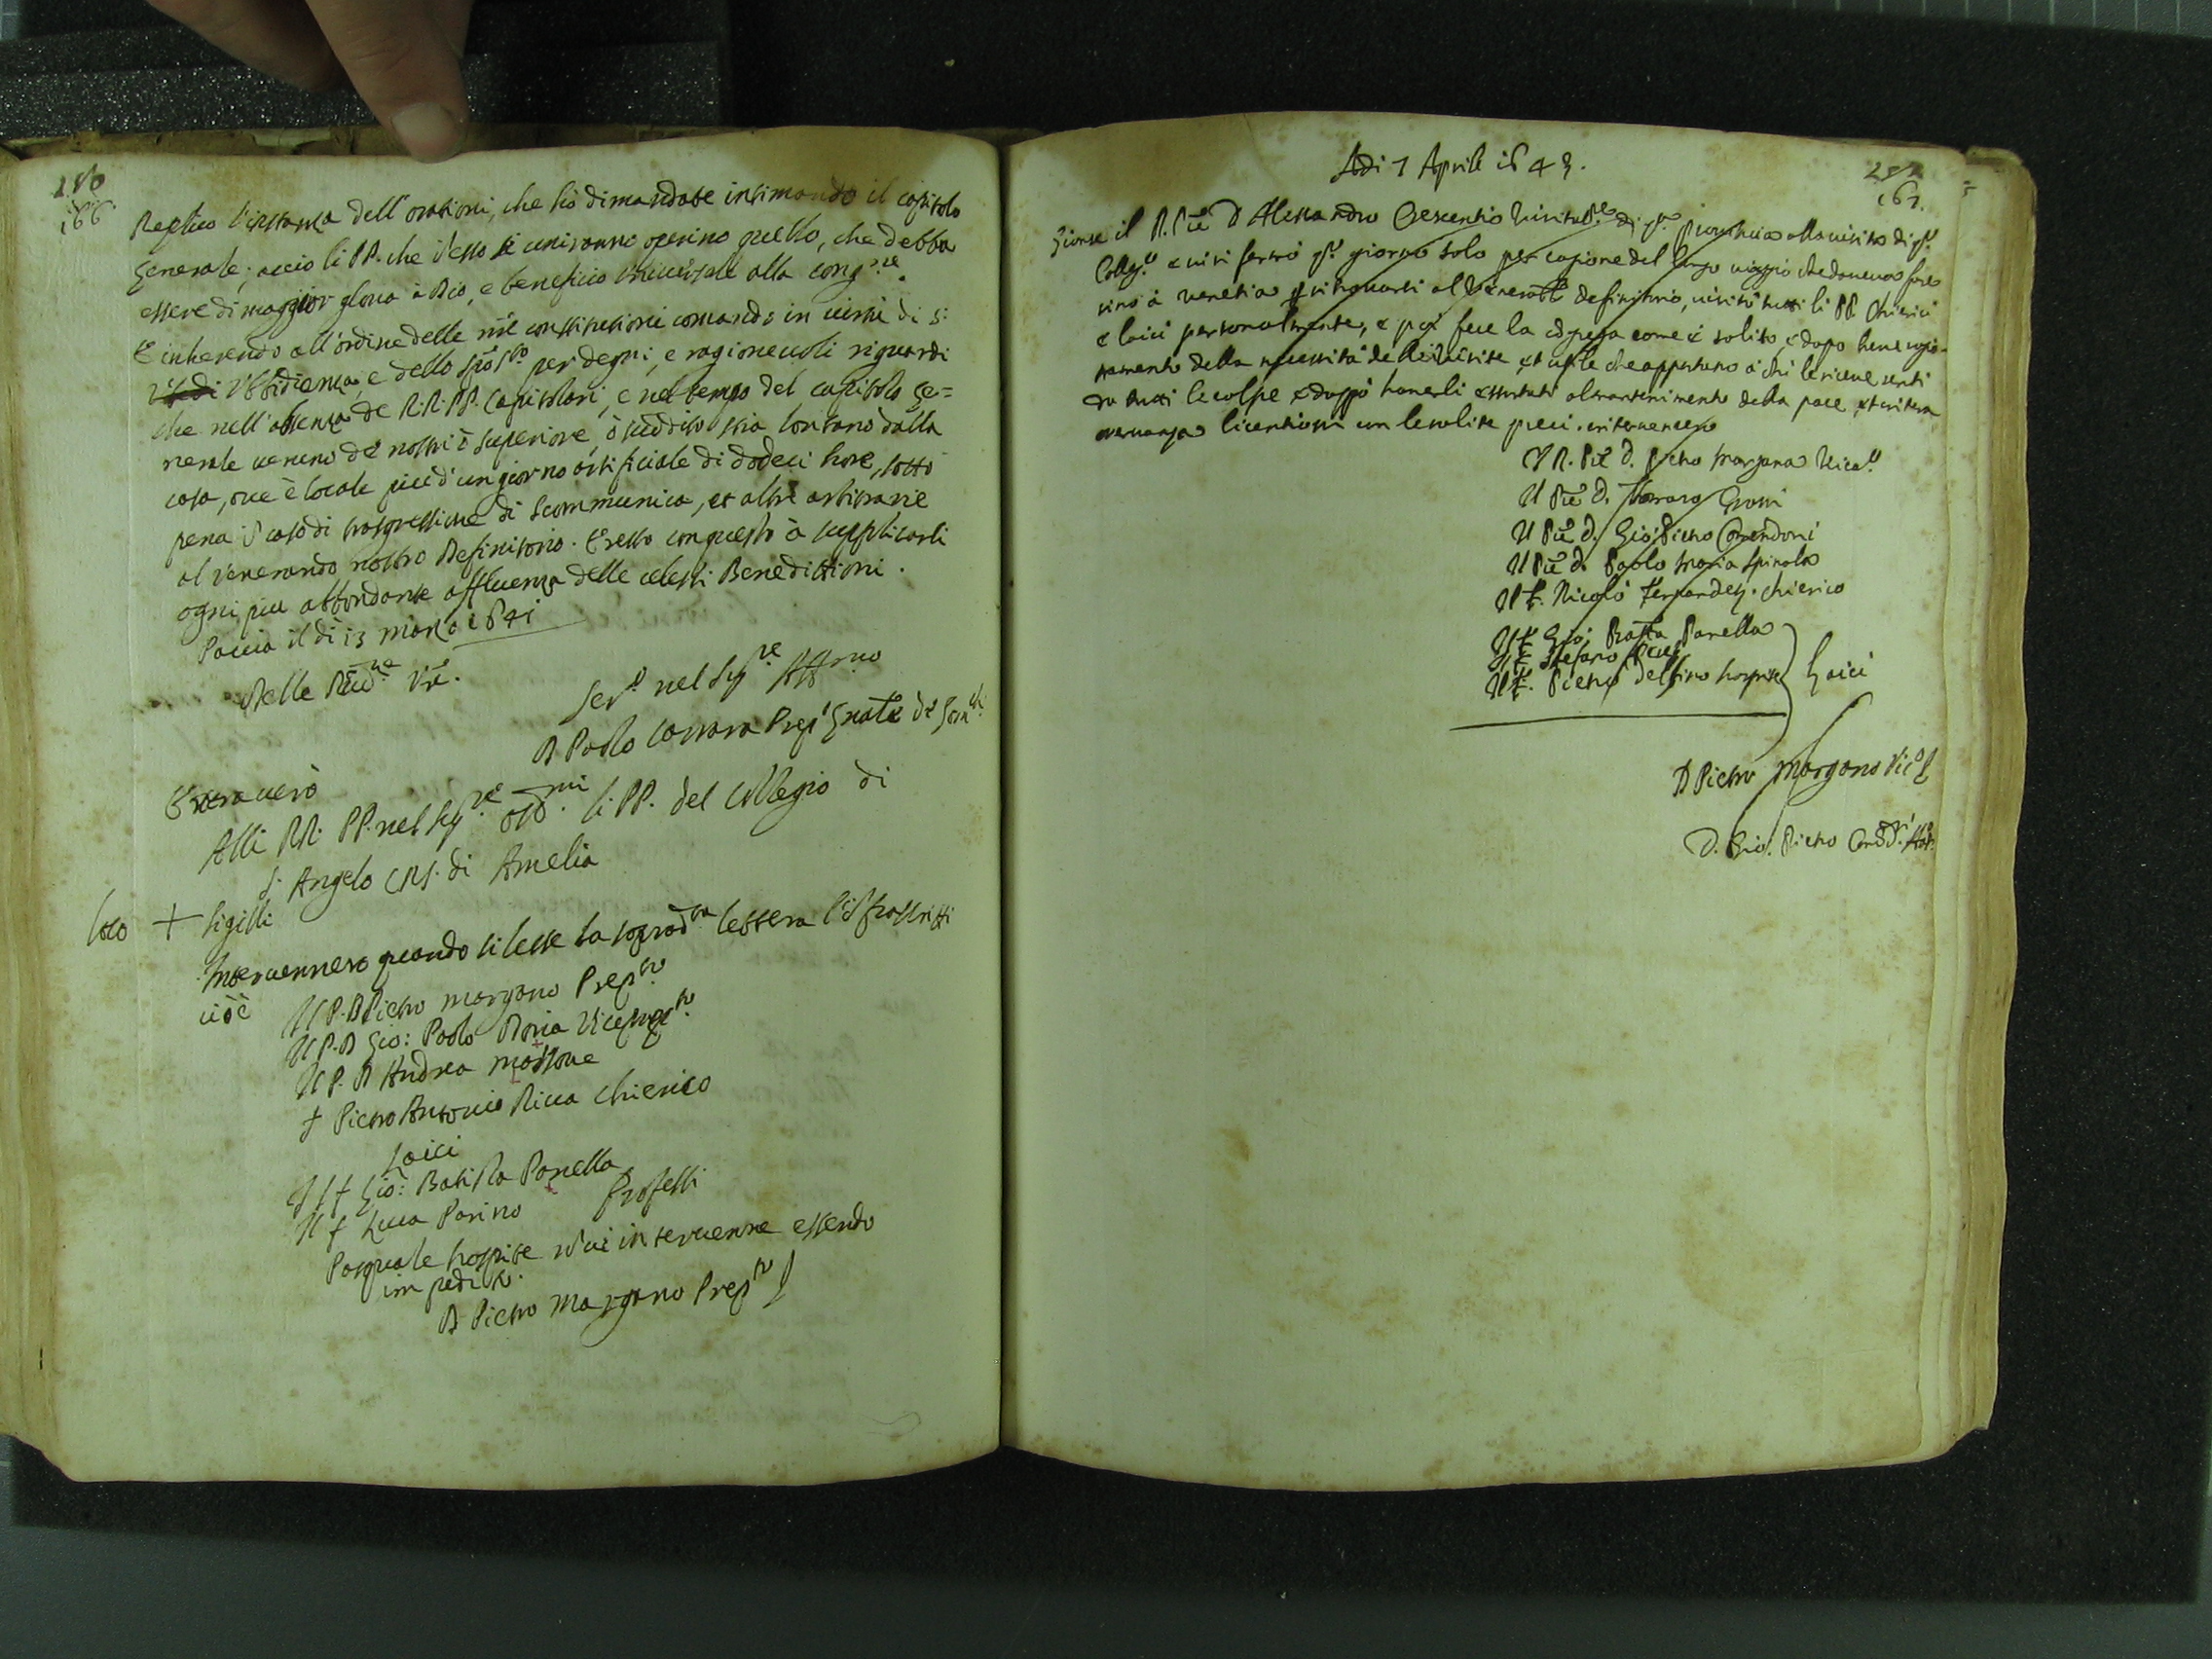 166
Replico l'instanza dell'orationi, che hò dimandate intimando il capitolo
Generale; acciò li PP. che i esso si uniranno operino quello, che debba
essere di maggior gloria à Dio, e beneficio universale alla cong.ne.
E inherendo all'ordine delle nr̃e constitutioni comando in virtù di S.
Ubidienza, e dello Spõ S.to per degni, e ragionevoli riguardi
che nell'assenza de RR. PP. Capitolari, e nel tempo del capitolo ge=
nerale veruno de nostri ò superiore, ò suddito stia lontano dalla
casa, ove è locale piu d'un giorno artificiale di dodeci hore, sotto
pena i caso di trasgressione di Scommunica, et altre arbitrarie
al Venerando nostro Definitorio. E resto con questo à supplicarli
ogni piu abbondante affluenza delle celesti Benedittioni.
Pavia il dì 13 marzo 1641
Delle RR.VV. Vr̃e.
Ser.e nel Sig.re Aff.mo
D Paolo Carrara Prep.to Gñale de Som.chi
Extra vero
Alli RR. PP. nel Sig.re oss.mi li PP. del Collegio di
S. Angelo CRS. di Amelia
Loco + Sigilli
Intervennero quando si lesse la soprad.ta lettera l'ifrascritti
cioè Il P. D Pietro Morgano Prep.to
Il P. D Gio: Paolo Doria Viceprep.to
Il P. D Andrea Massone
f Pietro Antonio Ricca Chierico
Laici
Il f Gio: Batista Panella
Il f Luca Parino Professi
Pasquale hospite nõ vi intervenne essendo
impedito.
D Pietro Morgano Prep.to
Adi 7 Aprile 1643.
167.
Gionse il R. Prẽ D Alessandro Crescentio Visitat.re di q.ta Provincia alla visita di q.to
Colleg.o e vi si fermò q.to giorno solo per cagione del lungo viaggio che doveva fare
sino à Venetia p ritrovarsi al Venerab.le definitorio, visitò tutti li PP. Chierici
e laici personalmente, e poi fece la cõgrega come è solito, e dopo breve ragio-
namento della necessità delle visite, et utile che apportano à chi le riceve senti
da tutti le colpe e doppò haverli essortati al mantenimento della pace et
osservanza licentiossi con le solite preci. intervennero
Il R. Prẽ D. Pietro Morgano Vica.o
Il Prẽ D. Tomaso Grossi
Il Prẽ D. Gio: Pietro Corendoni
Il Prẽ D. Paolo Maria Spinola
Il F. Nicolò Fernandez. Chierico
Il F. Gio: Batta Panella
Il F. Stefano
Il F. Pietro Delfino hospite
Laici
D Pietro Morgano Vic.o
D. Gio. Pietro